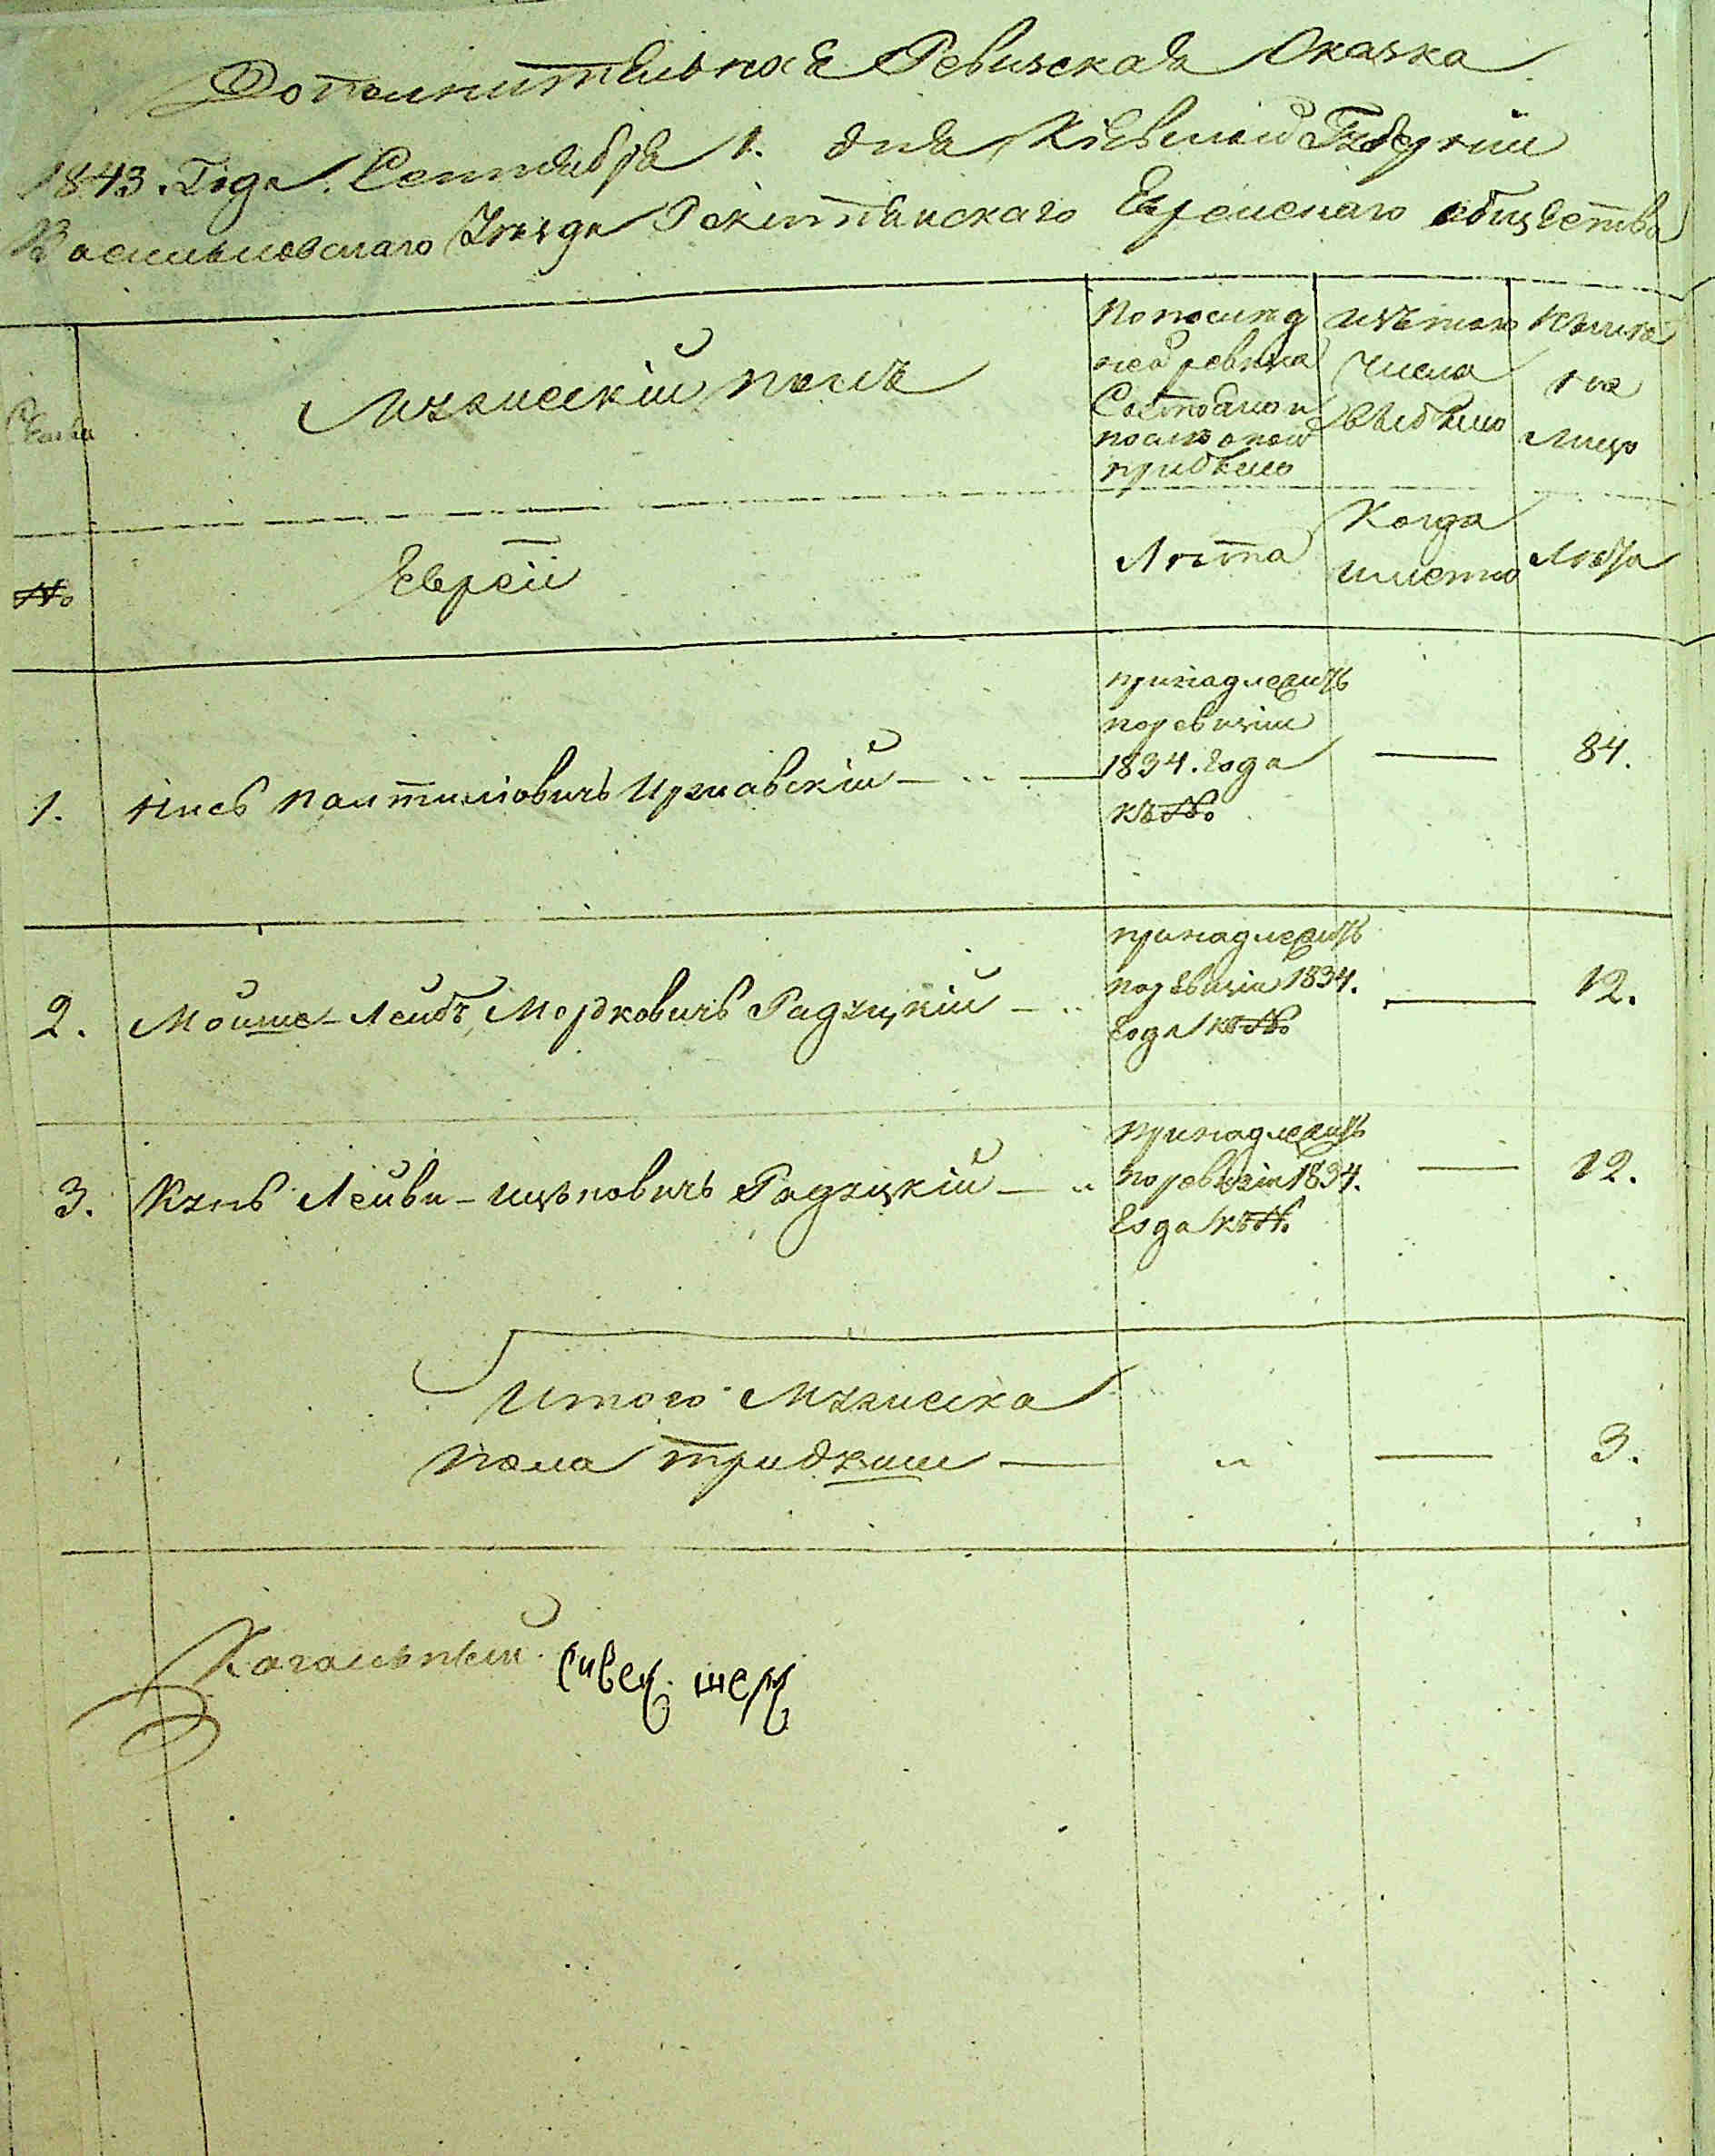 Дополнительная Ревизская Сказка
1843. Года. Сентября 1. дня Кіевской Губерніи
Васильковскаго Уезда Рокитянскаго Еврейскаго общества
Мужескій полъ
По послед
ней ревизіи
Состояло и
после оной
прибыло
изъ того
числа
выбыло
Ныне
на
лицо
№
Евреи
Лета
Когда
именно
Лета
1.
Принадлежитъ
по ревизіи
1834. Года
къ №
—
84.
2. Мойше-Лейбъ Мордковичъ Радзуцкій
Принадлежитъ
по ревизіи 1834.
Года къ №
—
12.
3. Лейби-Ицьковичъ Радзуцкій
Принадлежитъ
по ревизіи 1834.
Года къ №
—
12.
Итого Мужеска
пола прибыли — „ — 3.
Кагальный